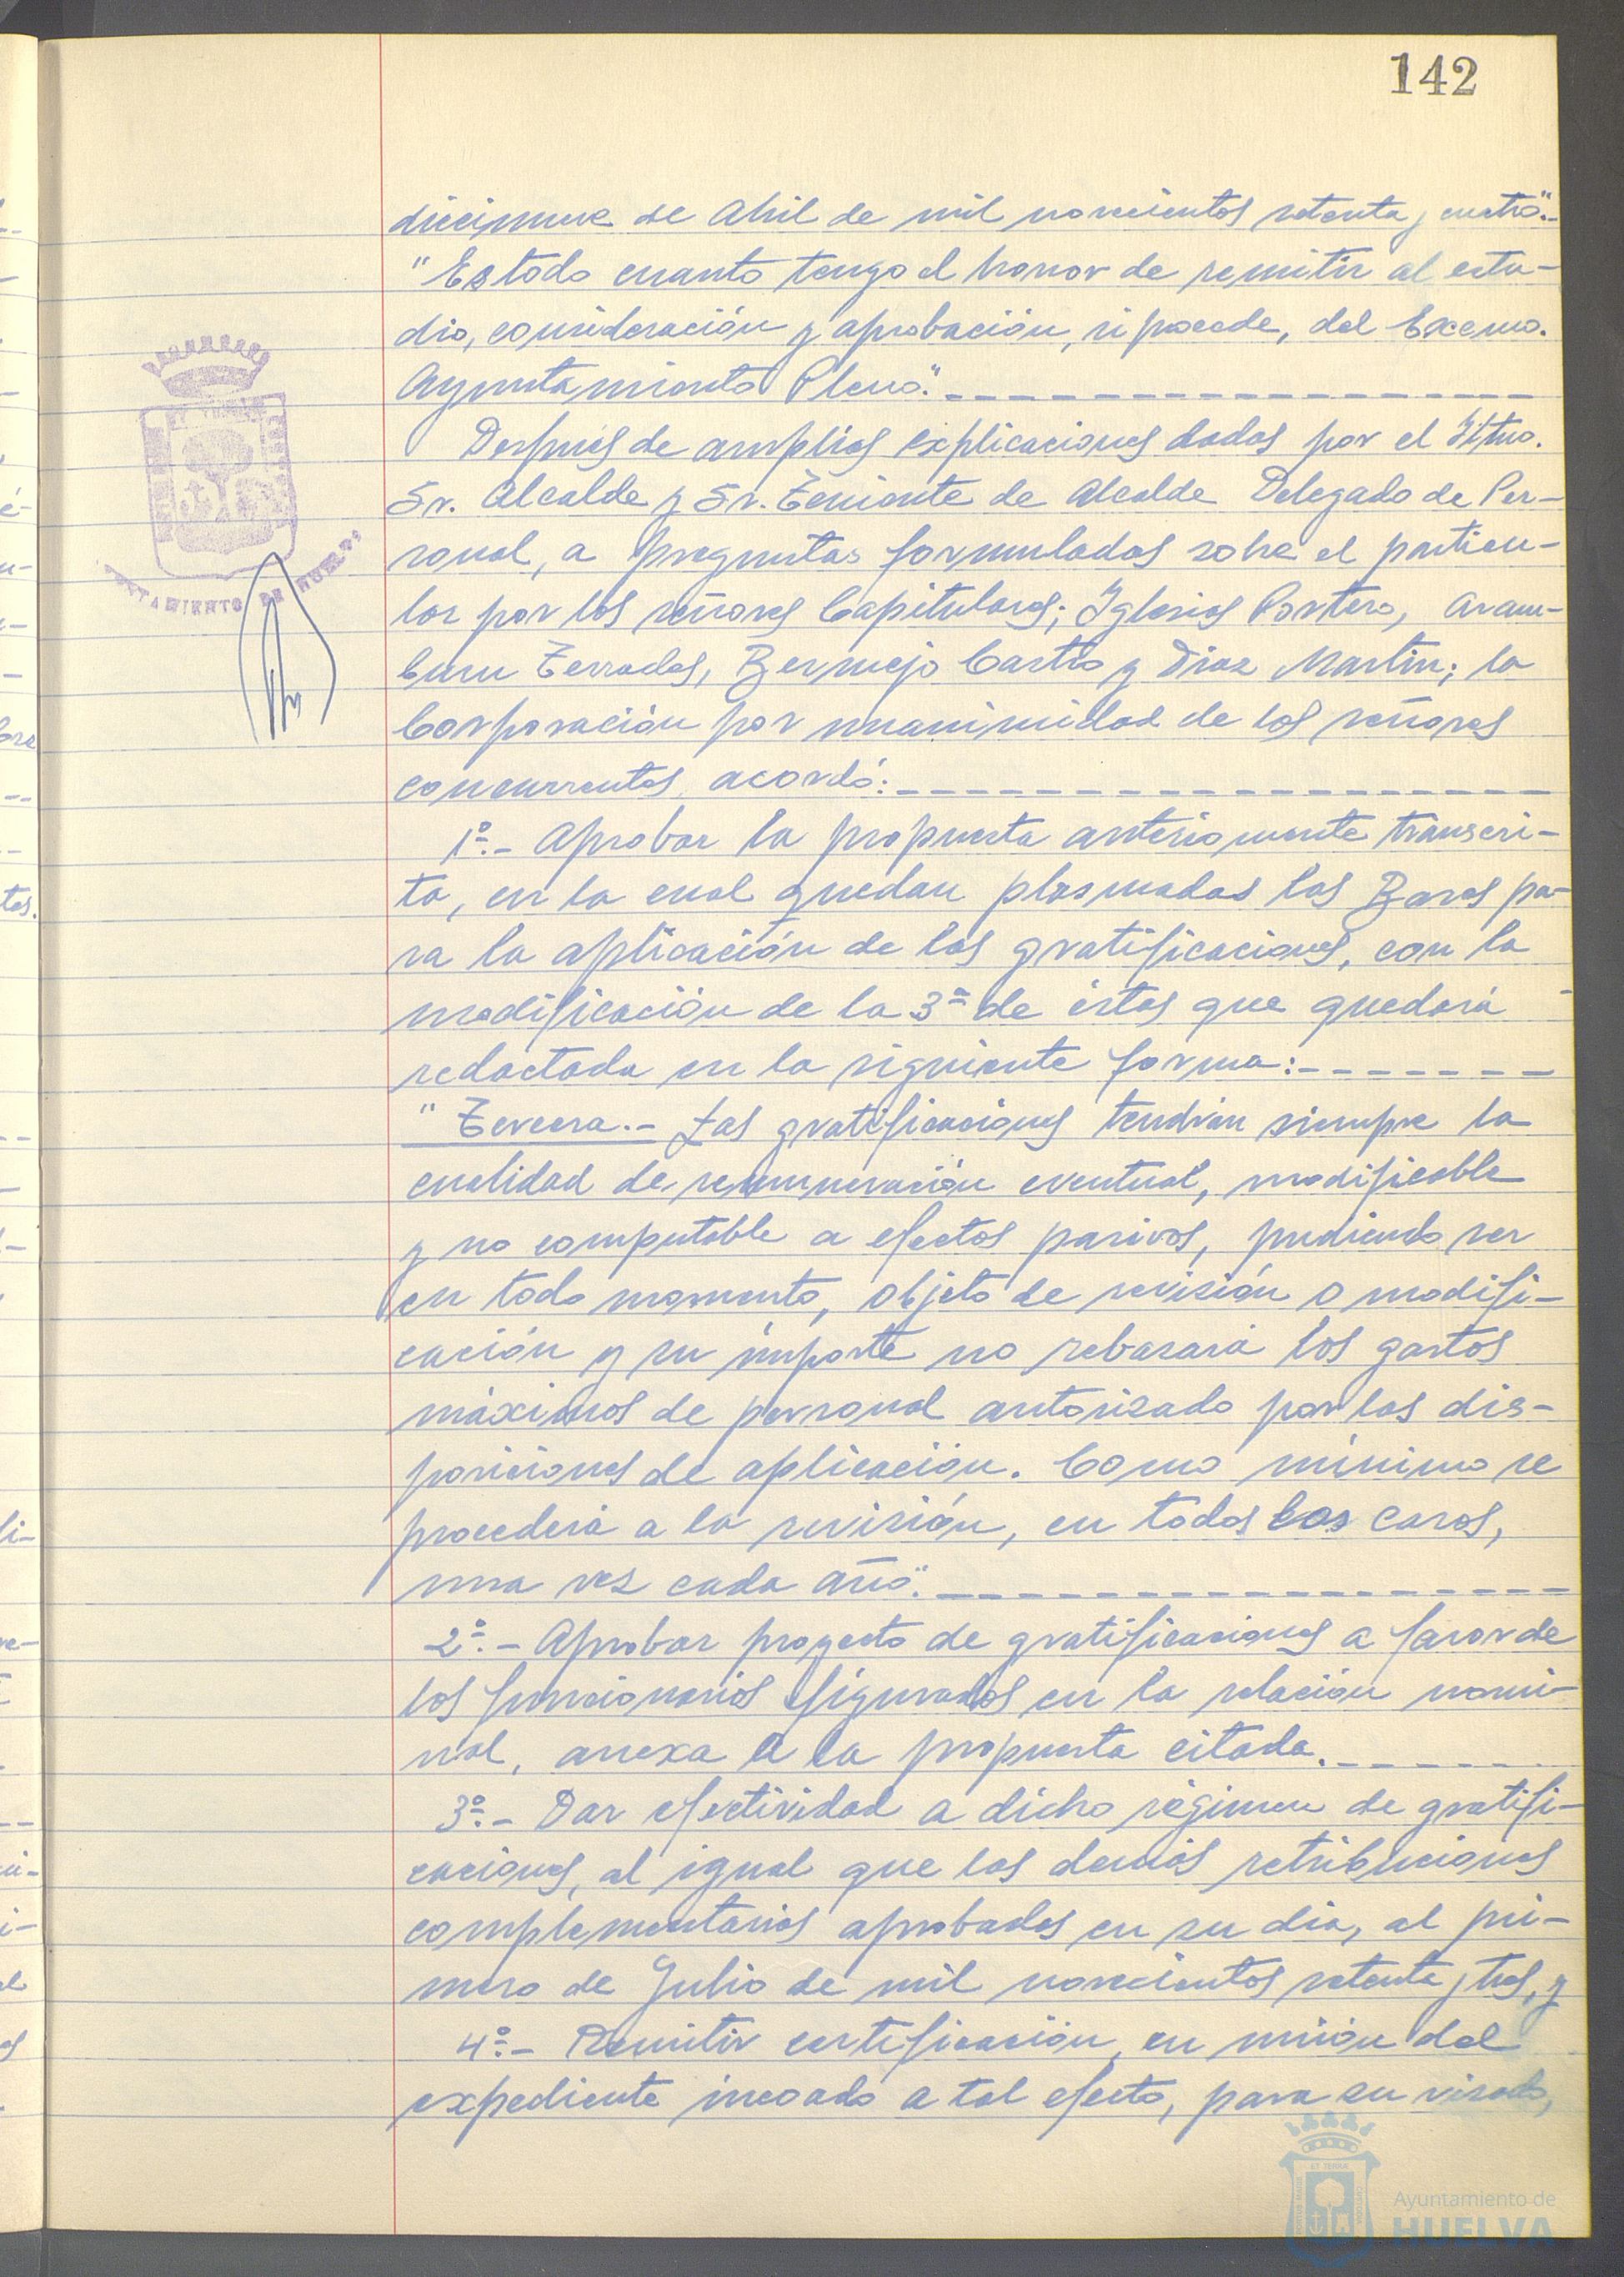 142
diecinueve de Abril de mil novecientos setenta y cuatro".-
"Es todo cuanto tengo el honor de remitir al estu-
dio, consideración y aprobación, si procede, del Excmo.
Ayuntamiento Pleno".
Después de amplias explicaciones dadas por el Iltmo.
Sr. Alcalde y Sr. Teniente de Alcalde Delegado de Per-
sonal, a preguntas formuladas sobre el particu-
lar por los señores Capitulares; Iglesias Portero, Aram-
buru Terrades, Bermejo Castro y Diaz Martin; la
Corporación por unanimidad de los señores
concurrentes, acordó:
1º.- Aprobar la propuesta anteriormente transcri-
ta, en la cual quedan plasmadas las Bases pa-
ra la aplicación de las gratificaciones, con la
modificación de la 3ª de éstas que quedará
redactada en la siguiente forma:
"Tercera.- Las gratificaciones tendrán siempre la
cualidad de remuneración eventual, modificable
y no computable a efectos pasivos, pudiendo ser
en todo momento, objeto de revisión o modifi-
cación y su importe no rebasará los gastos
máximos de personal autorizado por las dis-
posiciones de aplicación. Como mínimo se
procederá a la revisión, en todos los casos,
una vez cada año".
2º.- Aprobar proyecto de gratificaciones a favor de
los funcionarios figurados en la relación nomi-
nal, anexa a la propuesta citada.
3º.- Dar efectividad a dicho régimen de gratifi-
caciones, al igual que las demás retribuciones
complementarias aprobadas en su dia, al pri-
mero de Julio de mil novecientos setenta y tres, y
4º.- Remitir certificación, en unión del
expediente incoado a tal efecto, para su visado,
AYUNTAMIENTO DE HUELVA
Ayuntamiento de
HUELVA